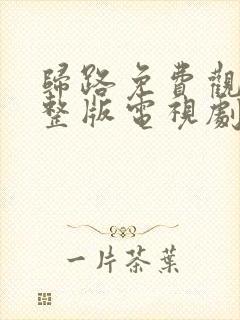 歸路免費觀
整版電視劇
一片茶葉